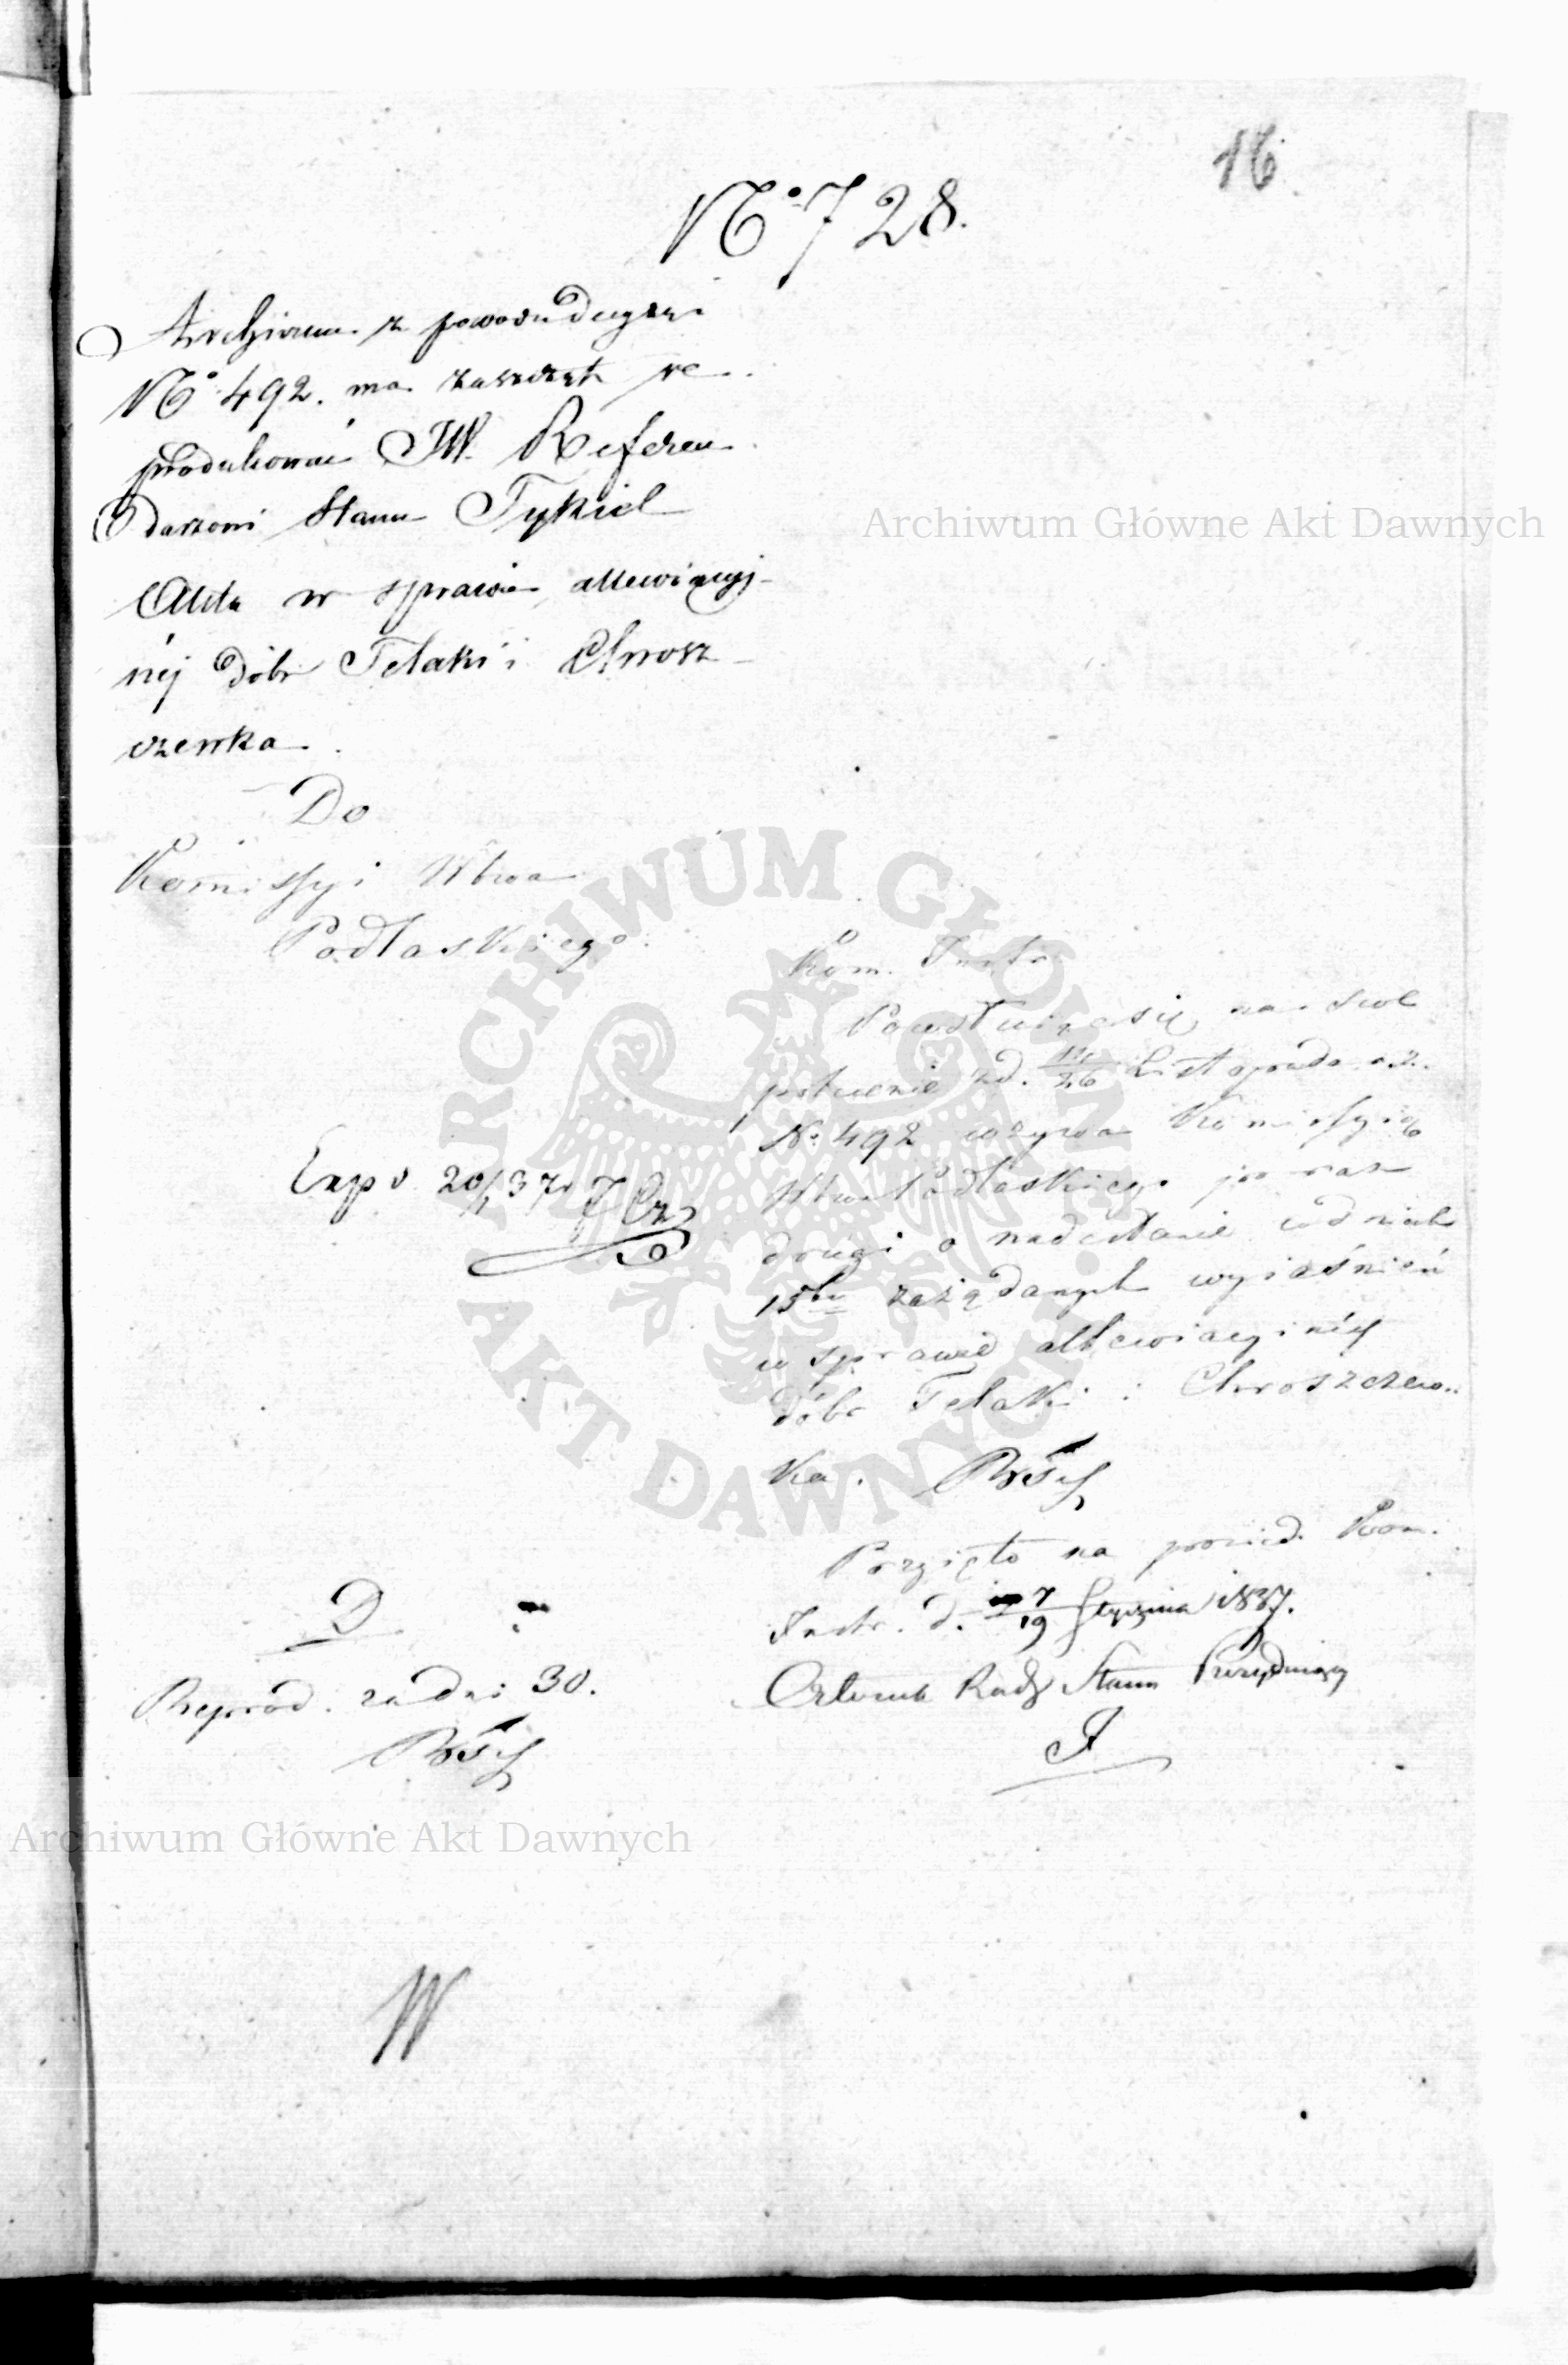 16
No 728.
Archiwum z powodu decyzyi
No 492. ma zaszczyt re
produkować JW. Referen
darzowi Stanu Tykiel
Akta w sprawie allewiacyj-
néj dóbr Telaki i Chrosz
czewka.
Do
Komissyi Wtwa
Podlaskiego.
Kom. Instr.
Powołuiąc się na swe
z d. 14/26 Listopada r. z.
No 492 wzywa Komissyią
Wtwa Podlaskiego po raz
drugi o nadesłanie w dniach
15tu zażądanych wyiaśnień
w sprawie allewiacyinéy
dóbr Telaki i Chroszczew-
ka.
Expv 20/1 37 r
Przyięto na posied. Kom.
Instr. d. 7/19 Stycznia 1837.
Członek Rady Stanu Prezyduiący
D
Reprod. za dni 30.
W
Archiwum Główne Akt Dawnych
ARCHIWUM GŁÓWNE AKT DAWNYCH
Archiwum Główne Akt Dawnych